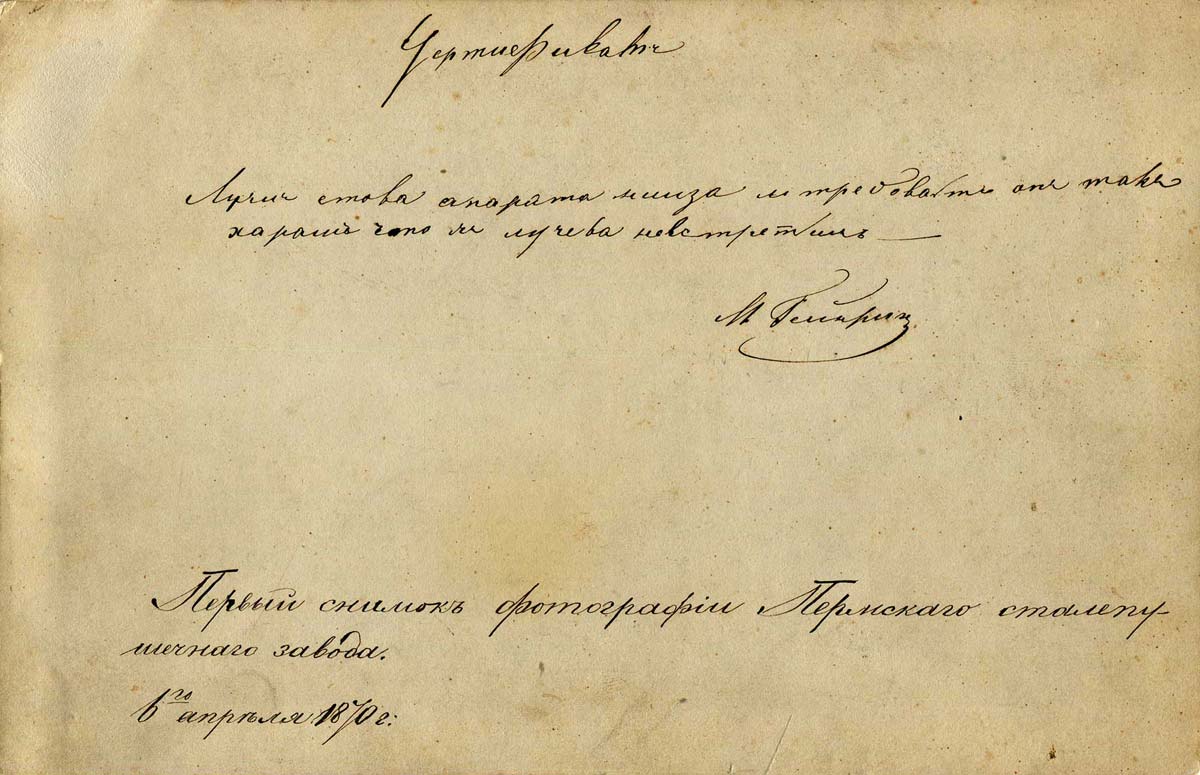 Чертиефикатъ
Лучи етова апарата нильза и требовать онъ такъ
харашъ что я лучева невстретилъ —
М Гейнрих
Первый снимокъ фотографіи Пермскаго сталепу-
шечнаго завода.
6го апрѣля 1870 г: